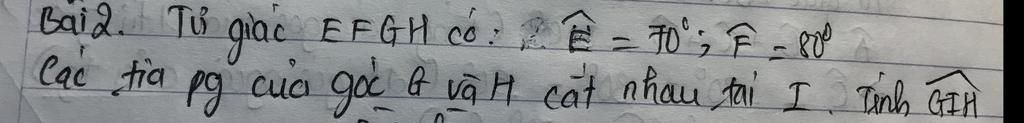 Bài 2. Tứ giác EFGH có: Ê = 70°; F̂ = 80°
Các tia pg của góc G và H cắt nhau tại I. Tính GIĤ